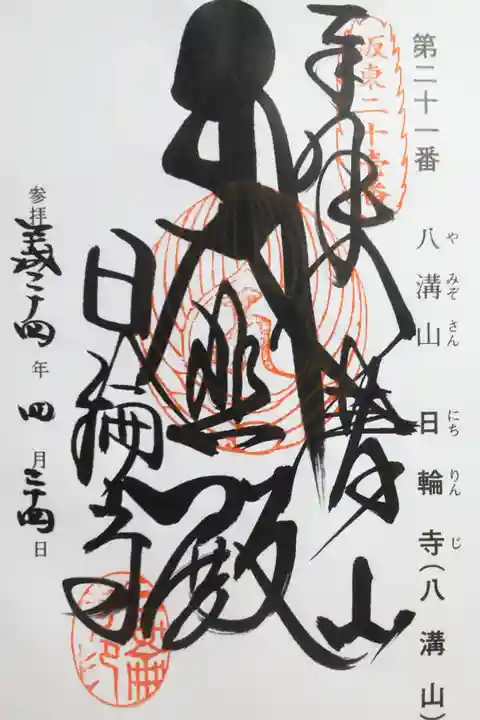 第二十一番 八溝山 日輪寺(八溝山)
や みぞ さん にち りん じ
坂東二十壱番
奉拝
山
大悲殿
日輪寺
参拝 平成二十四年 四月二十四日